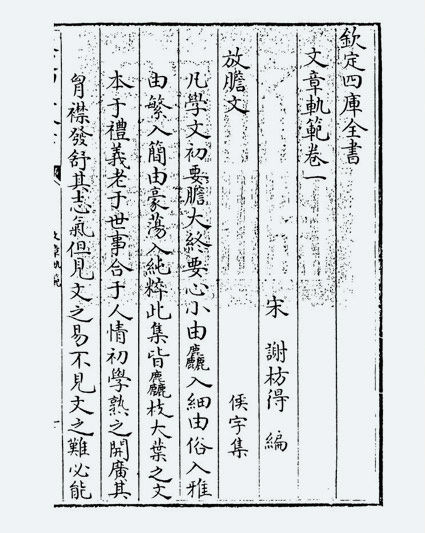 欽定四庫全書
文章軌範卷一
宋 謝枋得 編
放膽文 侯字集
凡學文初要膽大終要心小由麤入細由俗入雅
由繁入簡由豪蕩入純粹此集皆麤枝大葉之文
本于禮義老于世事合于人情初學熟之開廣其
胷襟發舒其志氣但見文之易不見文之難必能